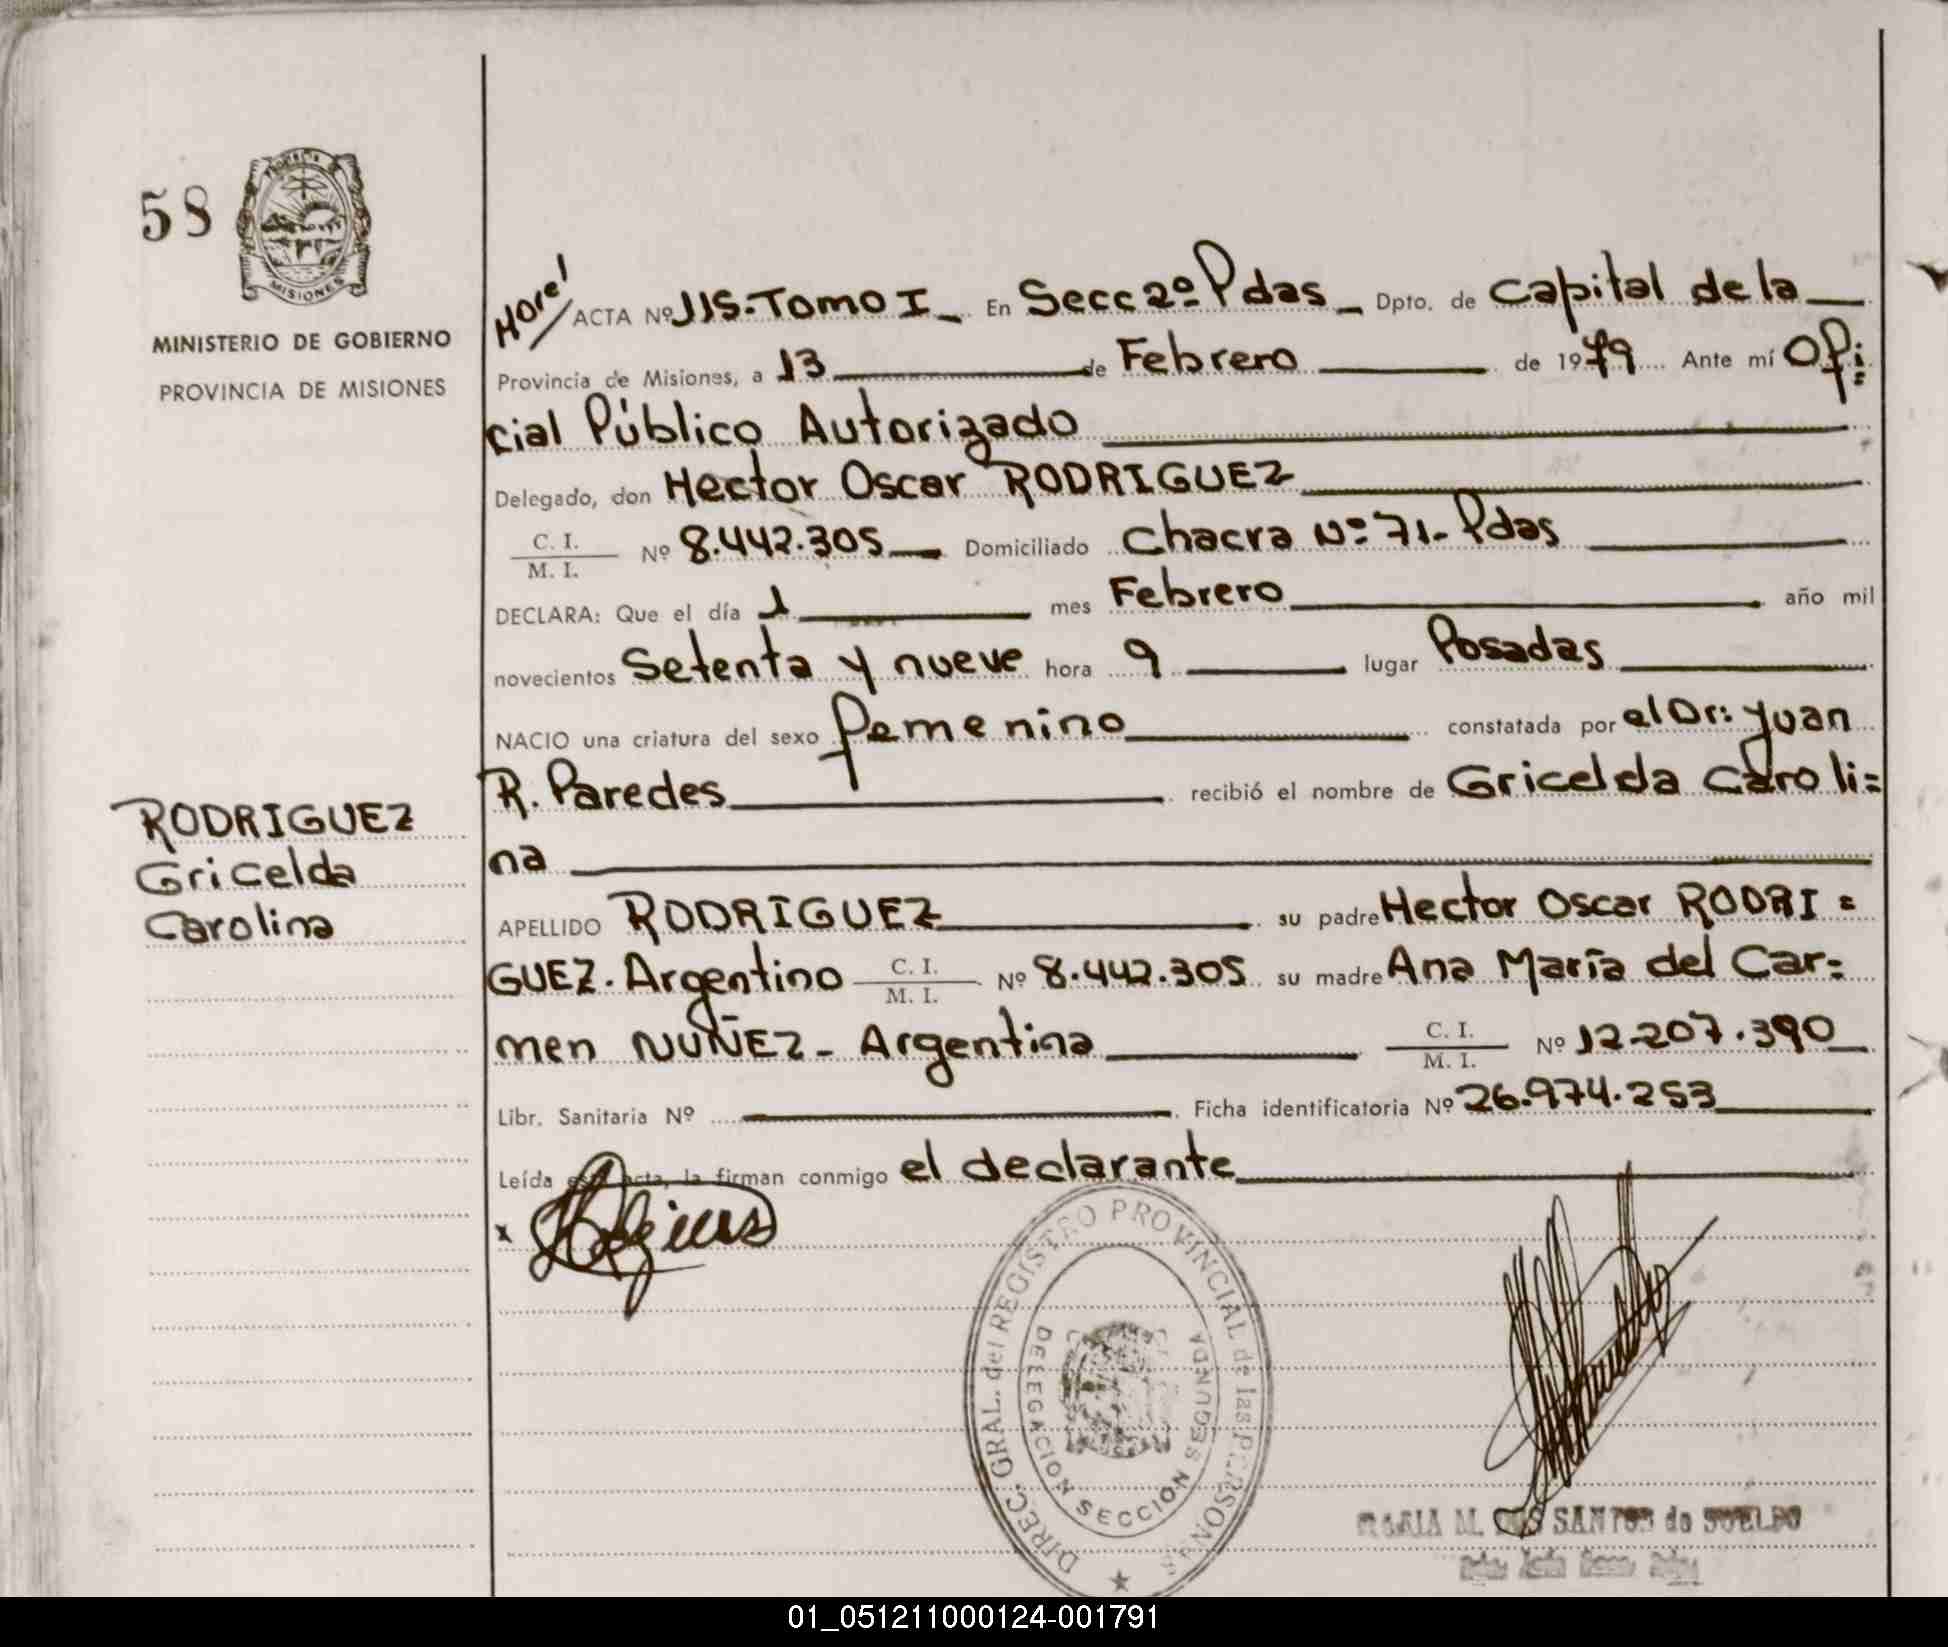 58
MISIONES
MINISTERIO DE GOBIERNO
PROVINCIA DE MISIONES
ACTA Nº 115-Tomo I - En Secc 2º Pdas - Dpto. de Capital de la
Provincia de Misiones, a 13 de Febrero de 1979 Ante mí Ofi=
cial Público Autorizado
Delegado, don Hector Oscar RODRIGUEZ
C. I. / M. I. Nº 8.442.305 Domiciliado Chacra Nº 71- Pdas
DECLARA: Que el día 1 mes Febrero año mil
novecientos Setenta y nueve hora 9 lugar Posadas
NACIO una criatura del sexo femenino constatada por el Dr: Juan
R. Paredes recibió el nombre de Gricelda Caroli=
na
RODRIGUEZ
Gricelda
Carolina
APELLIDO RODRIGUEZ su padre Hector Oscar RODRI=
GUEZ. Argentino C. I. / M. I. Nº 8.442.305 su madre Ana María del Car=
men NUÑEZ- Argentina C. I. / M. I. Nº 12.207.390
Libr. Sanitaria Nº Ficha identificatoria Nº 26.974.253
Leída esta acta, la firman conmigo el declarante
x
DIREC. GRAL. del REGISTRO PROVINCIAL de las PERSONAS
DELEGACION SECCION SEGUNDA
MARIA M. DOS SANTOS de SUELDO
01_051211000124-001791